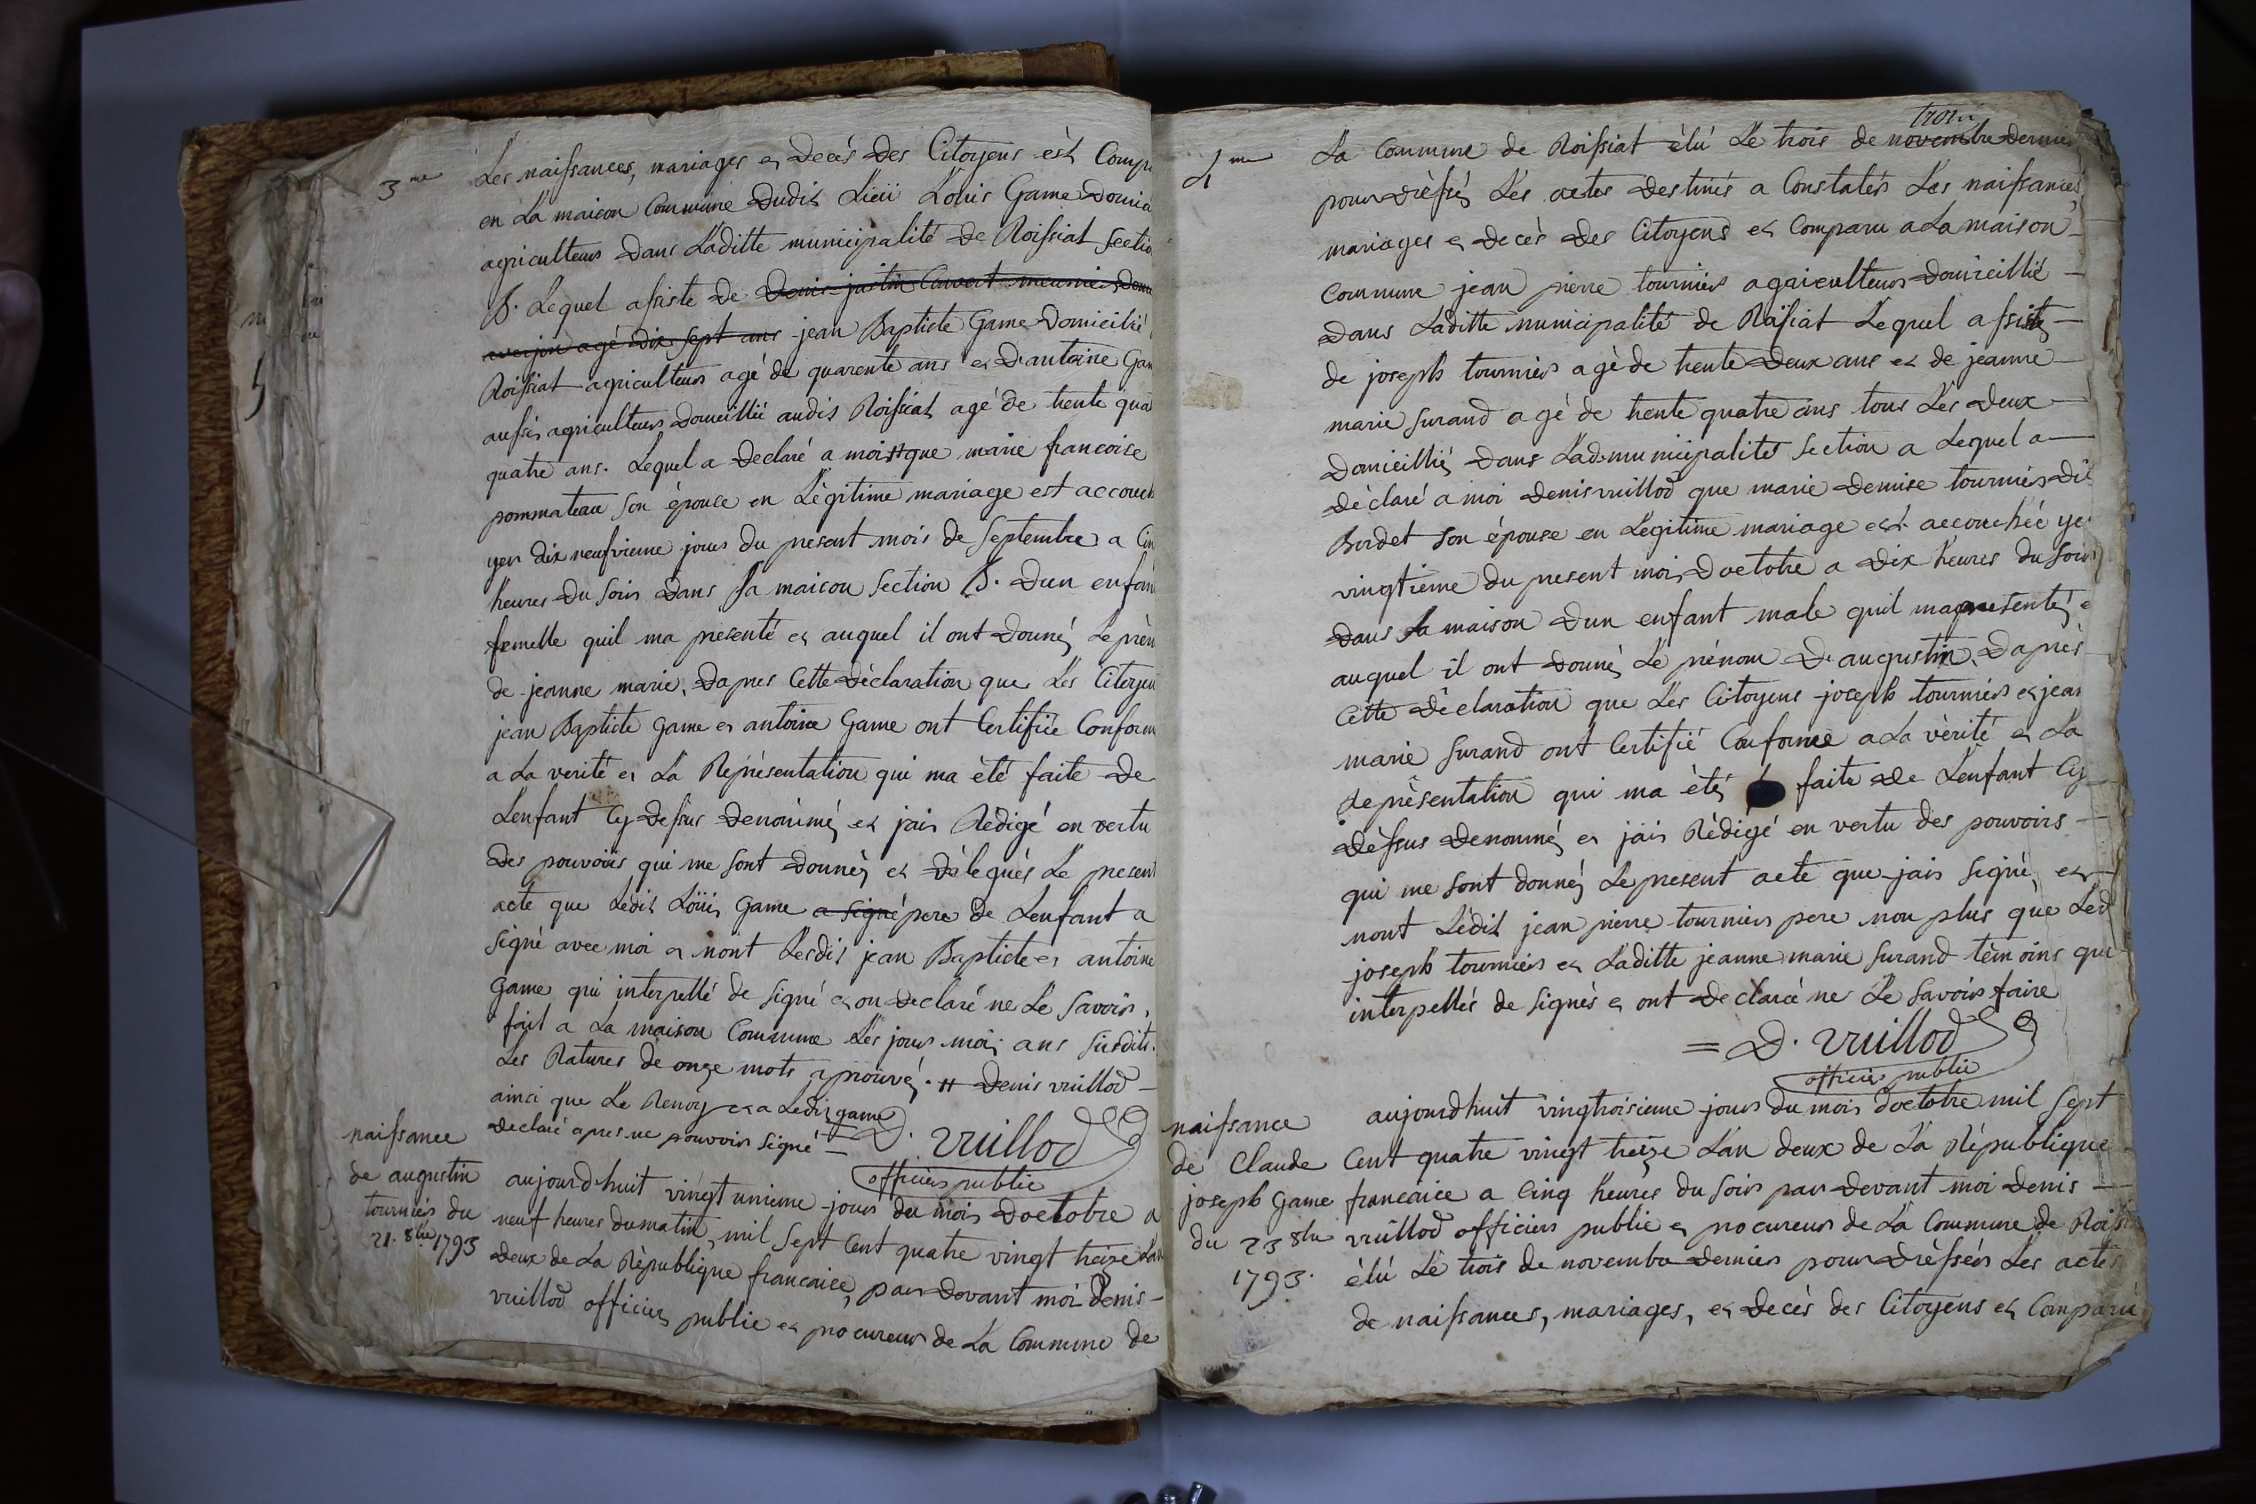 3me
Les naissances, mariages et decès des Citoyens èst Comp
en La maison Commune dudit Lieü Loüis Game Domici
agriculteur dans Laditte municipalité de Roissiat Sectio
B. Lequel assiste de Denis justin Convert meunier dem
averjon agé dix sept ans jean Baptiste Game Domicilié
Roissiat agriculteur agé de quarente ans et d'antoine Gam
aussi agriculteur domicillié audit Roissiat agé de trente qua
quatre ans. Lequel a declaré a moi # que marie francoise
pommateau son épouse en Légitime mariage est accouch
yer dix neufvieme jour du present mois de Septembre a Cin
heures du soir dans sa maison section B. dun enfan
femelle quil ma presenté et auquel il ont donné Le prèn
de jeanne marie, dapres Cette dèclaration que Les Citoyen
jean Baptiste Game et antoine Game ont Certifiée Conform
a La verité et La Représentation qui ma èté faite de
Lenfant Cy dessus denommé et jais Rèdigé en vertu
des pouvoirs qui me sont donnés et dèleguès Le presen
acte que Ledit Loüis Game a signé pere de Lenfant a
signé avec moi et nont Lesdit jean Baptiste et antoine
Game qui interpellé de signé et on declaré ne Le savoir,
fait a La maison Commune Les jour mois ans susdits.
Les Ratures de onze mots aprouvé. # Denis vuillod
ainsi que Le Renvoy et a Ledit game
declaré apres ne pouvoir signé
D. vuillod
officier public
naissance
de augustin
tournier du
21. 8bre 1793
aujourdhuit vingt unieme jour du mois doctobre a
neuf heures du matin, mil sept Cent quatre vingt treize Lan
deux de La Rèpublique francaice, par devant moi Denis
vuillod officier public et procureur de La Commune de
4me
La Commune de Roissiat èlü Le trois de novembre dernier
pour dréssé Les actes destinés a Constatér Les naissances,
mariages et decès des Citoyens et Comparu a La maison
Commune jean pierre tournier agriculteur domicillié
dans Laditte municipalité de Roissiat Lequel assisté
de joseph tournier agè de trente deux ans et de jeanne
marie surand agé de trente quatre ans tous Les deux
domicillié dans Lad. municipalité section a Lequel a
dèclaré a moi denis vuillod que marie denise tournier dit
Bordet son épouse en Légitime mariage est accouchéé ye
vingtieme du present mois doctobre a dix heures du soir
dans sa maison dun enfant male quil ma presenté e
auquel il ont donné Le prénom d'augustin, dapres
Cette dèclaration que Les Citoyens joseph tournier et jean
marie surand ont Certifié Conforme a La vèrité et La
Reprèsentation qui ma ètè faite de Lenfant Cy
dèssus denommé et jais Rèdigé en vertu des pouvoirs
qui me sont donnés Le present acte que jais signé, et
nont Lèdit jean pierre tournier pere non plus que Led
joseph tournier et Laditte jeanne marie surand tèmoins qui
interpellés de signés et ont declaré ne Le savoir faire
= D. vuillod
officier public
naissance
de Claude
joseph Game
du 23 8bre
1793.
aujourdhuit vingtroisieme jour du mois doctobre mil sept
Cent quatre vingt treize Lan deux de La Rèpublique
francaice a Cinq heures du soir par devant moi Denis
vuillod officier public et procureur de La Commune de Roissi
èlü Le trois de novembre dernier pour drèssér Les actes
de naissances, mariages, et decès des Citoyens et Comparu